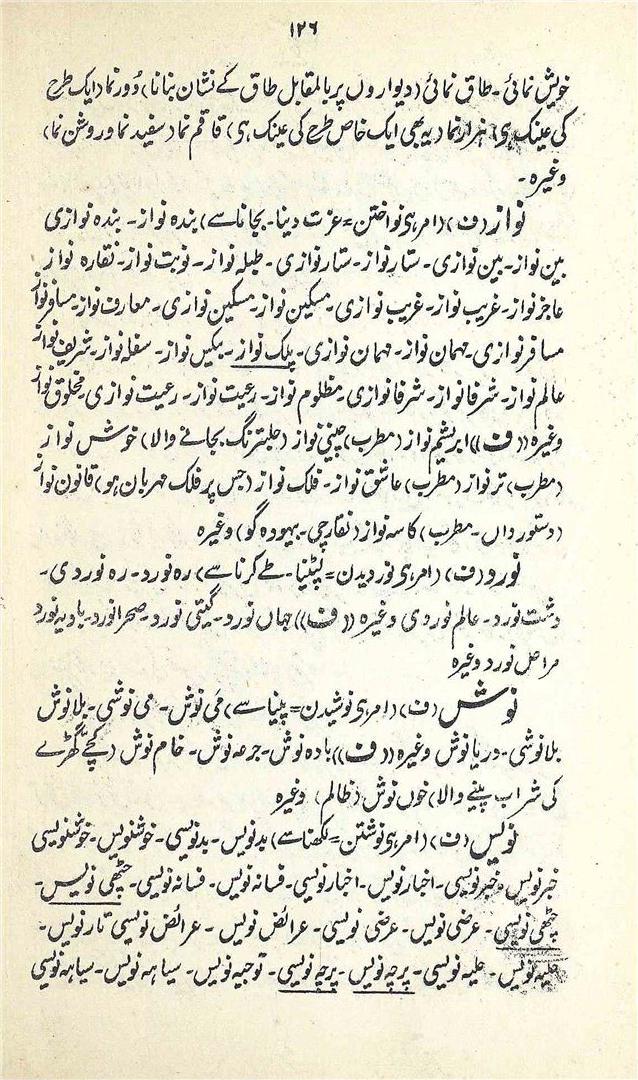 ۱۲۶
خویش نمائی۔ طاق نمائی (دیواروں پر بالمقابل طاق کے نشان بنانا) دُور نما (ایک طرح
کی عینک ہی) ہزار نما (یہ بھی ایک خاص طرح کی عینک ہی) قاقم نما (سفید نما و روشن نما)
وغیرہ۔
نواز (ف) (امر ہی نواختن = عزت دینا۔ بجانا سے) بندہ نواز۔ بندہ نوازی
بین نواز۔ بین نوازی۔ ستار نواز۔ ستار نوازی۔ طبلہ نواز۔ نوبت نواز۔ نقارہ نواز
عاجز نواز۔ غریب نواز۔ غریب نوازی۔ مسکین نواز۔ مسکین نوازی۔ معارف نواز۔ مسافر نواز
مسافر نوازی۔ مہمان نواز۔ مہمان نوازی۔ پلک نواز۔ بیکس نواز۔ سفلہ نواز۔ شریف نواز
عالم نواز۔ شرفا نواز۔ شرفا نوازی۔ مظلوم نواز۔ رعیت نواز۔ رعیت نوازی۔ مخلوق نواز
وغیرہ ((ف)) ابریشم نواز (مطرب) چینی نواز (جلترنگ بجانے والا) خوش نواز
(مطرب) تر نواز (مطرب) عاشق نواز۔ فلک نواز (جس پر فلک مہربان ہو) قانون نواز
(دستور داں۔ مطرب) کاسہ نواز (نقارچی۔ بیہودہ گو) وغیرہ
نورد (ف) (امر ہی نوردیدن = لپٹنا۔ طے کرنا سے) رہ نورد۔ رہ نوردی۔
دشت نورد۔ عالم نوردی وغیرہ ((ف)) جہاں نورد۔ گیتی نورد۔ صحرا نورد۔ بادیہ نورد
مراحل نورد وغیرہ
نوش (ف) (امر ہی نوشیدن = پینا سے) مَی نوش۔ می نوشی۔ بلا نوش
بلا نوشی۔ دریا نوش وغیرہ ((ف)) بادہ نوش۔ جرعہ نوش۔ خام نوش (کچّے گھڑے
کی شراب پینے والا) خوں نوش (ظالم) وغیرہ
نویس (ف) (امر ہی نوشتن = لکھنا سے) بدنویس۔ بدنویسی۔ خوشنویس۔ خوشنویسی
خبر نویس۔ خبر نویسی۔ اخبار نویس۔ اخبار نویسی۔ فسانہ نویس۔ فسانہ نویسی۔ چٹھی نویس۔
چٹھی نویسی۔ عرضی نویس۔ عرضی نویسی۔ عرائض نویس۔ عرائض نویسی تار نویس۔
حلیہ نویس۔ حلیہ نویسی۔ پرچہ نویس۔ پرچہ نویسی۔ توجیہ نویس۔ سیاہہ نویس۔ سیاہہ نویسی